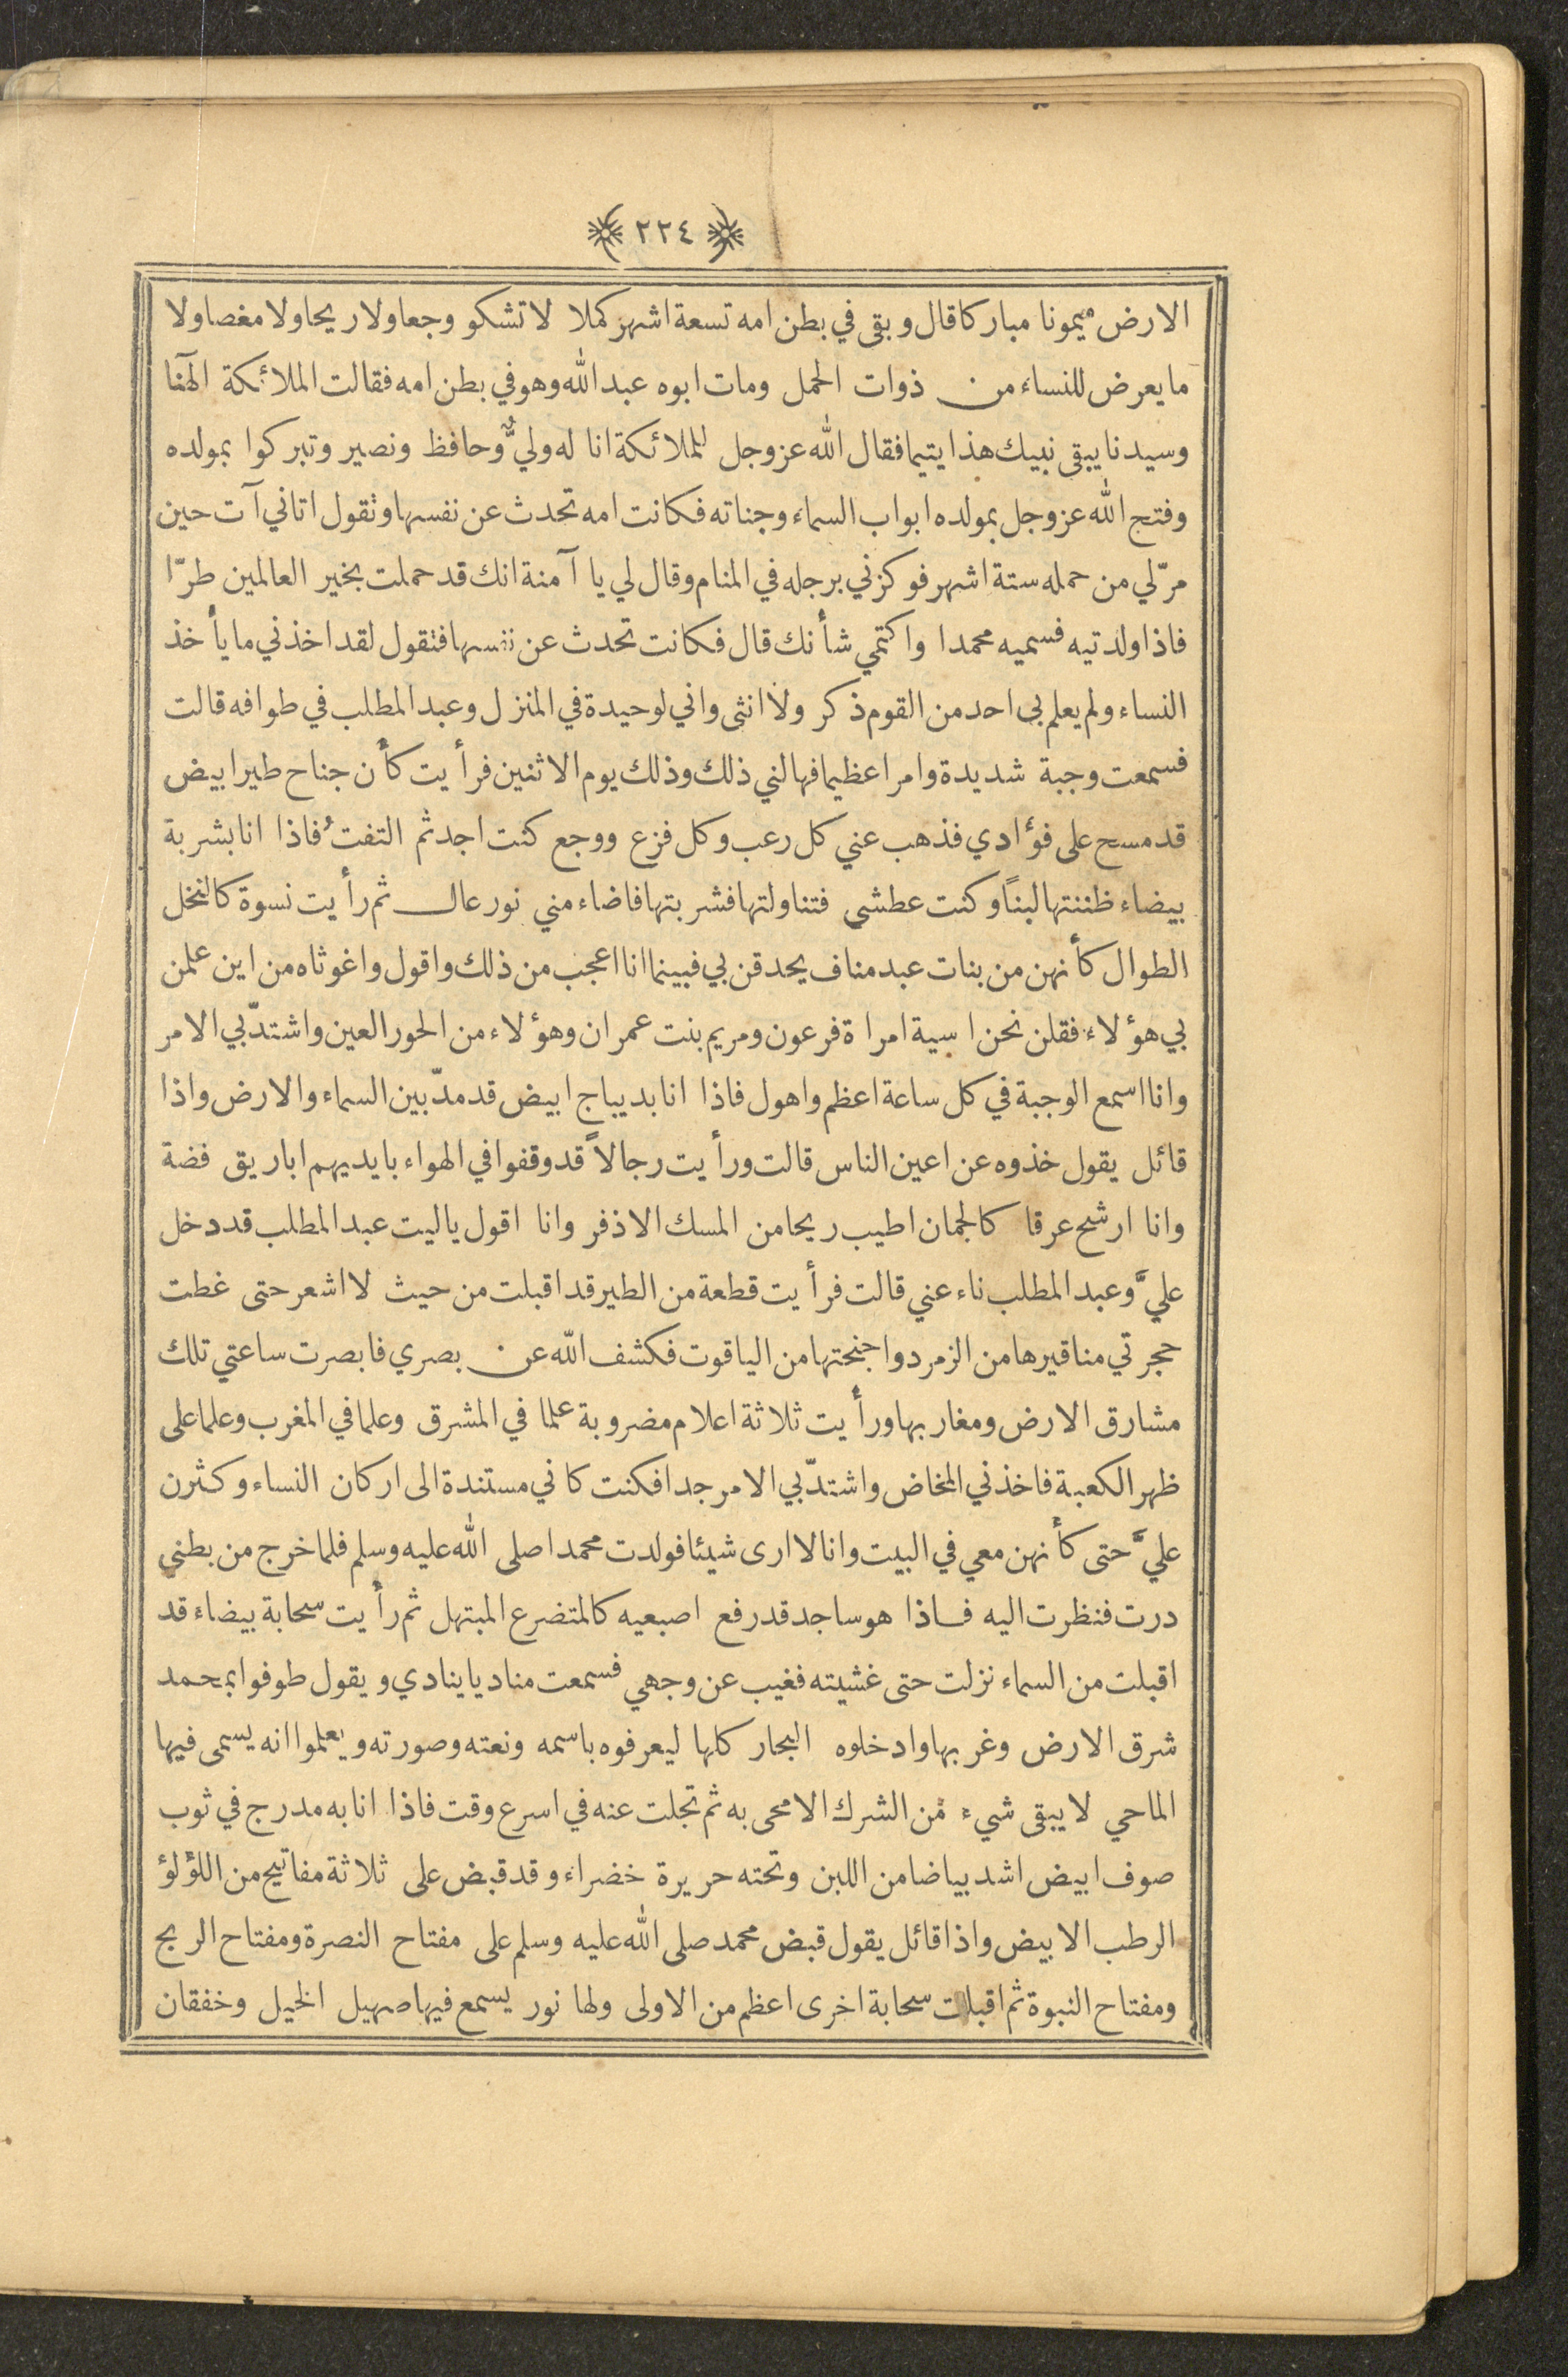 ٢٢٤
الارض ميمونا مباركا قال وبقى في بطن امه تسعة اشهر كملا لا تشكو وجعا ولا ريحا ولا مغصا ولا
ما يعرض للنساء من ذوات الحمل ومات ابوه عبد الله وهو في بطن امه فقالت الملائكة الٓهنا
وسيدنا يبقى نبيك هذا يتيما فقال الله عز وجل للملائكة انا له وليٌّ وحافظ ونصير وتبركوا بمولده
وفتح الله عز وجل بمولده ابواب السماء وجناته فكانت امه تحدث عن نفسها وتقول اتاني آت حين
مرّ لي من حمله ستة اشهر فوكزني برجله في المنام وقال لي يا آمنة انك قد حملت بخير العالمين طرّا
فاذا ولدتيه فسميه محمدا واكتمي شأنك قال فكانت تحدث عن نفسها فتقول لقد اخذني ما يأخذ
النساء ولم يعلم بي احد من القوم ذكر ولا انثى واني لوحيدة في المنزل وعبد المطلب في طوافه قالت
فسمعت وجبة شديدة وامرا عظيما فهالني ذلك وذلك يوم الاثنين فرأيت كأن جناح طير ابيض
قد مسح على فؤادي فذهب عني كل رعب وكل فزع ووجع كنت اجد ثم التفتُ فاذا انا بشربة
بيضاء ظننتها لبنًا وكنت عطشى فتناولتها فشربتها فاضاء مني نور عال ثم رأيت نسوة كالنخل
الطوال كأنهن من بنات عبد مناف يحدقن بي فبينما انا اعجب من ذلك واقول واغوثاه من اين علمن
بي هؤلاء فقلن نحن اسية امراة فرعون ومريم بنت عمران وهؤلاء من الحور العين واشتدّ بي الامر
وانا اسمع الوجبة في كل ساعة اعظم واهول فاذا انا بديباج ابيض قد مدّ بين السماء والارض واذا
قائل يقول خذوه عن اعين الناس قالت ورأيت رجالاً قد وقفوا في الهواء بايديهم اباريق فضة
وانا ارشح عرقا كالجمان اطيب ريحا من المسك الاذفر وانا اقول يا ليت عبد المطلب قد دخل
عليَّ وعبد المطلب ناء عني قالت فرأيت قطعة من الطير قد اقبلت من حيث لا اشعر حتى غطت
حجرتي مناقيرها من الزمرد واجنحتها من الياقوت فكشف الله عن بصري فابصرت ساعتي تلك
مشارق الارض ومغاربها ورأيت ثلاثة اعلام مضروبة علما في المشرق وعلما في المغرب وعلما على
ظهر الكعبة فاخذني المخاض واشتدّ بي الامر جدا فكنت كاني مستندة الى اركان النساء وكثرن
عليَّ حتى كأنهن معي في البيت وانا لا ارى شيئا فولدت محمدا صلى الله عليه وسلم فلما خرج من بطني
درت فنظرت اليه فاذا هو ساجد قد رفع اصبعيه كالمتضرع المبتهل ثم رأيت سحابة بيضاء قد
اقبلت من السماء نزلت حتى غشيته فغيب عن وجهي فسمعت مناديا ينادي ويقول طوفوا بمحمد
شرق الارض وغربها وادخلوه البحار كلها ليعرفوه باسمه ونعته وصورته ويعلموا انه يسمى فيها
الماحي لا يبقى شيء من الشرك الا محى به ثم تجلت عنه في اسرع وقت فاذا انا به مدرج في ثوب
صوف ابيض اشد بياضا من اللبن وتحته حريرة خضراء وقد قبض على ثلاثة مفاتيح من اللؤلؤ
الرطب الابيض واذا قائل يقول قبض محمد صلى الله عليه وسلم على مفتاح النصرة ومفتاح الريح
ومفتاح النبوة ثم اقبلت سحابة اخرى اعظم من الاولى ولها نور يسمع فيها صهيل الخيل وخفقان